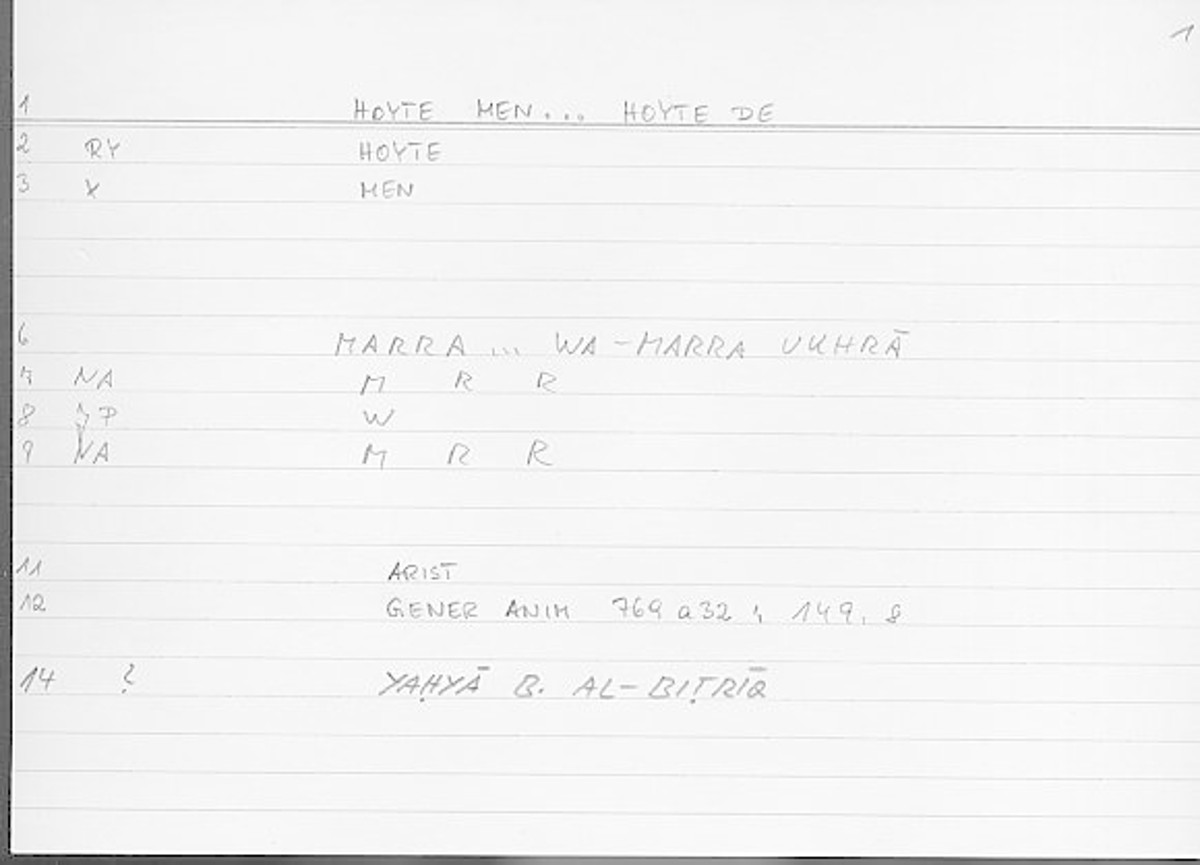 1
1 HOYTE MEN... HOYTE DE
2 RY HOYTE
3 X MEN
6 MARRA ... WA-MARRA UKHRĀ
7 NA M R R
8 P W
9 NA M R R
11 ARIST
12 GENER ANIM 769 a 32 ; 149, 8
14 ? YAḤYĀ B. AL-BIṬRĪQ